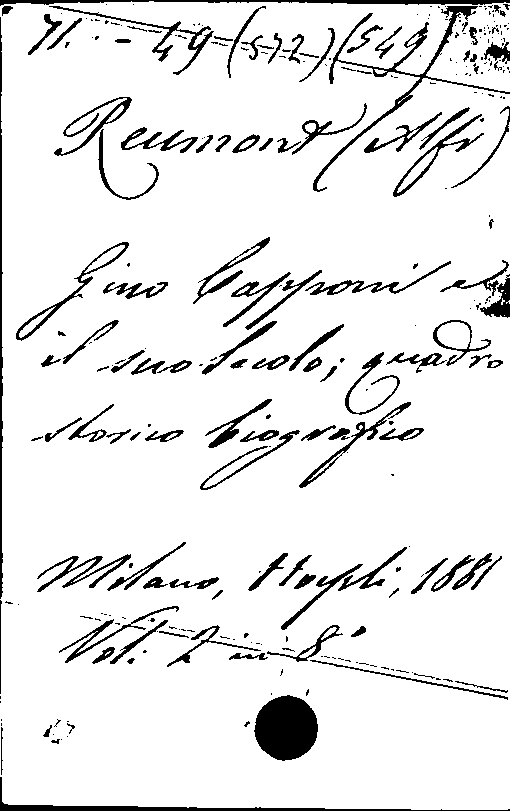 71. - 49 (572) (549)
Reumont (Alfr)
Gino Capponi e
il suo secolo; quadro
storico biografico
Milano, Hoepli, 1881
Vol. 2 in 8°